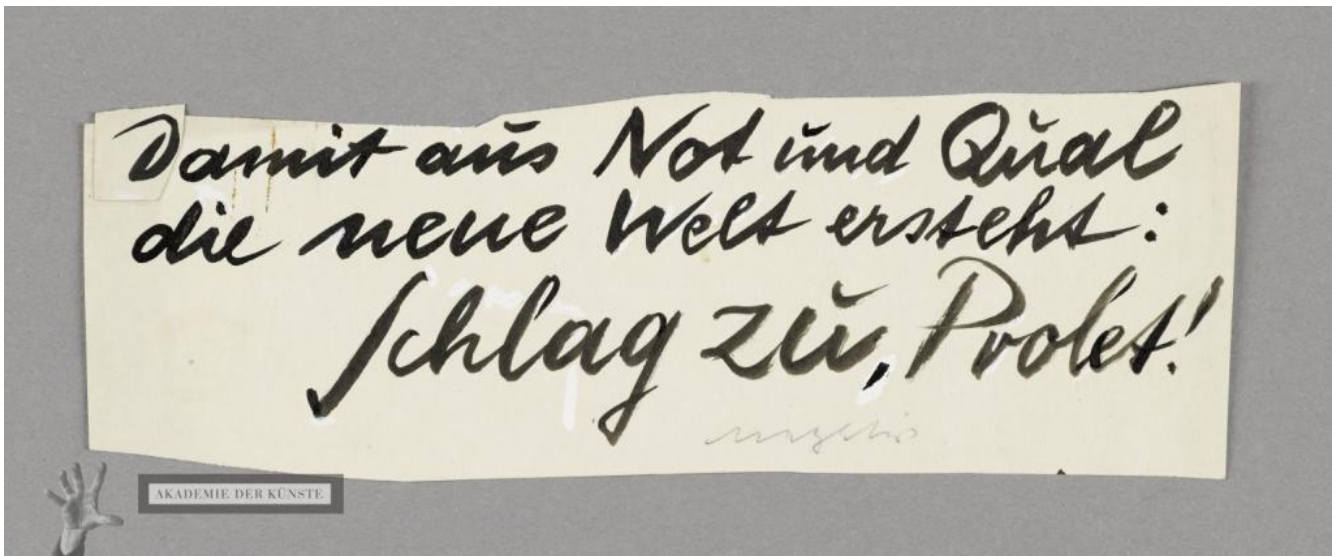 Damit aus Not und Qual
die neue Welt ersteht:
Schlag zu, Prolet!
AKADEMIE DER KÜNSTE